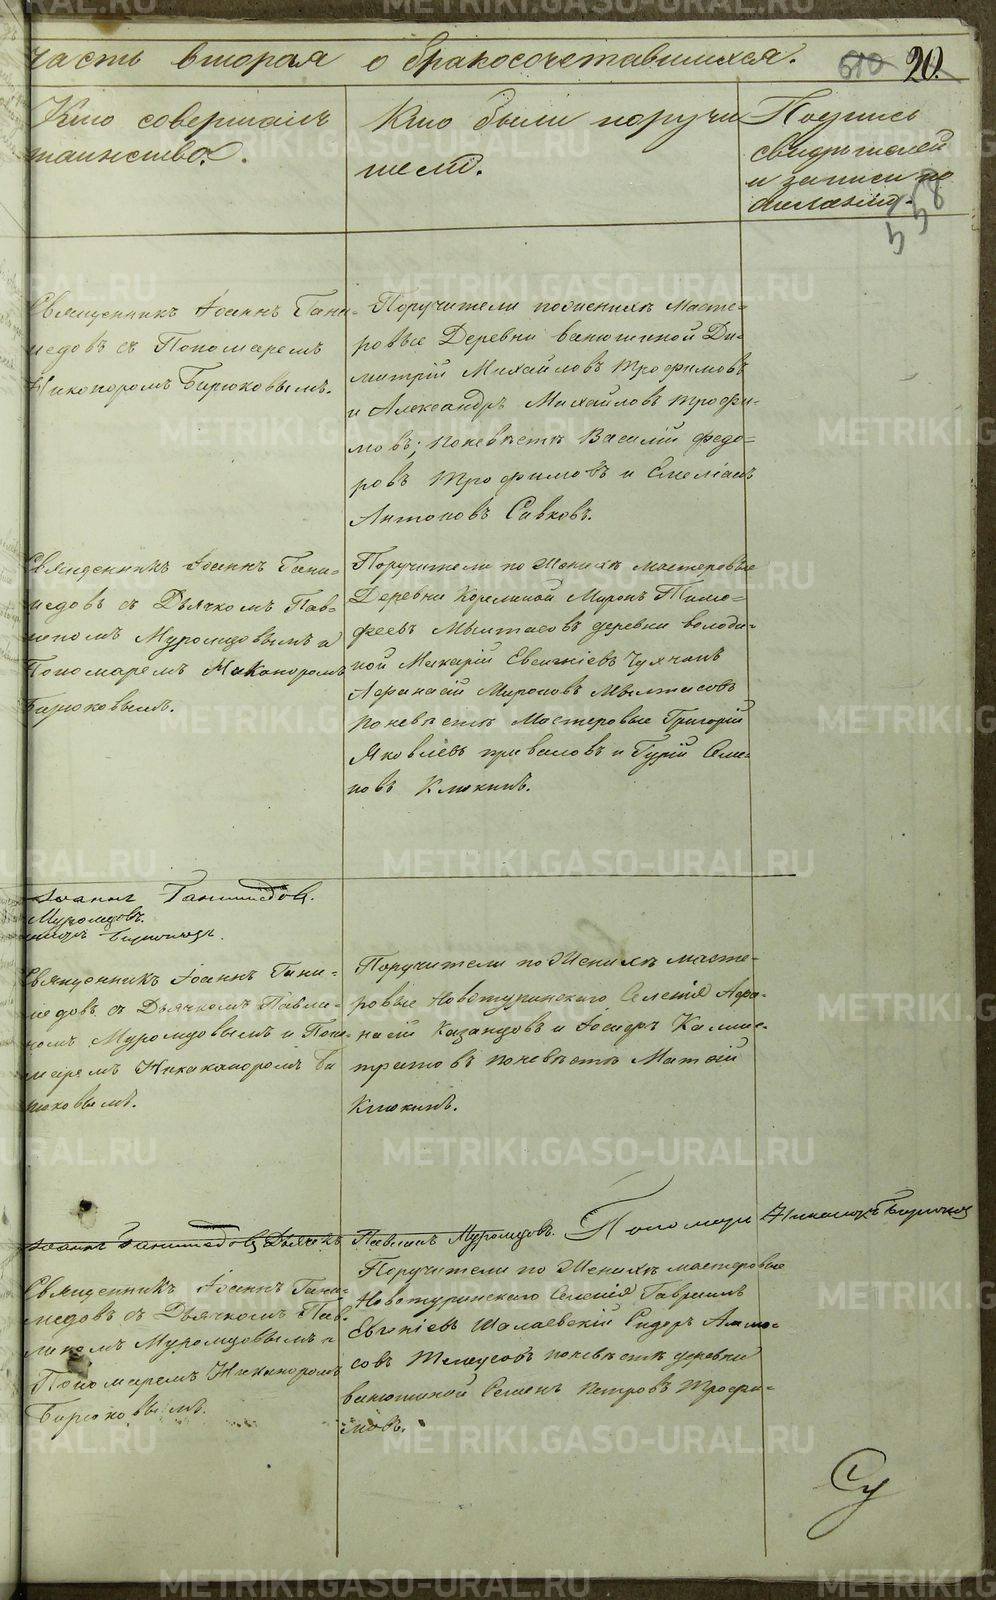 часть вторая о бракосочетавшихся.
510 20.
Кто совершалъ
таинство.
Кто были поручи
тели.
Подпись
свидѣтелей
и записи по
желанію.
Священникъ Іоаннъ Гани-
медовъ съ Пономаремъ
Никаноромъ Бирюковымъ.
Поручители по женихѣ Масте-
ровые Деревни ванюшиной Ди-
митрій Михайловъ Трофимовъ
и Александръ Михайловъ Трофи-
мовъ; по невѣстѣ Василій Федо-
ровъ Трофимовъ и Емеліанъ
Антоновъ Савковъ.
Священникъ Іоаннъ Гани-
медовъ съ Дьячкомъ Пав-
линомъ Муромцовымъ и
Пономаремъ Никаноромъ
Бирюковымъ.
Поручители по Женихѣ мастеровые
Деревни Корелиной Миронъ Тимо-
феевъ Мылтасовъ деревни володи-
ной Макарій Евгеніевъ
Афанасій Мироновъ Мылтасовъ
по невѣстѣ Мастеровые Григорій
Яковлевъ приваловъ и Гурій Семе-
новъ Клюкинъ.
Іоаннъ Ганимедовъ.
Муромцовъ.
Бирюковъ.
Священникъ Іоаннъ Гани-
медовъ съ Дьячкомъ Павли-
номъ Муромцовымъ и Поно-
маремъ Никаноромъ Би
рюковымъ.
Поручители по Женихѣ масте-
ровые Новотуринскаго Селенія Афа-
насій Казанцовъ и Исидоръ Калист-
ратовъ по невѣстѣ Матвій
Клюкинъ.
Іоаннъ Ганимедовъ Дьячекъ Павлинъ Муромцовъ. Пономарь Никаноръ Бирюковъ
Священникъ Іоаннъ Гани-
медовъ съ Дьячкомъ Пав-
линомъ Муромцовымъ и
Пономаремъ Никаноромъ
Бирюковымъ.
Поручители по Женихѣ мастеровые
Новотуринскаго Селенія Гавріилъ
Евгеніевъ Шалаевскій Сидоръ Аммо-
совъ по невѣстѣ деревни
ванюшиной Семенъ Петровъ Трофи-
мовъ.
METRIKI.GASO-URAL.RU